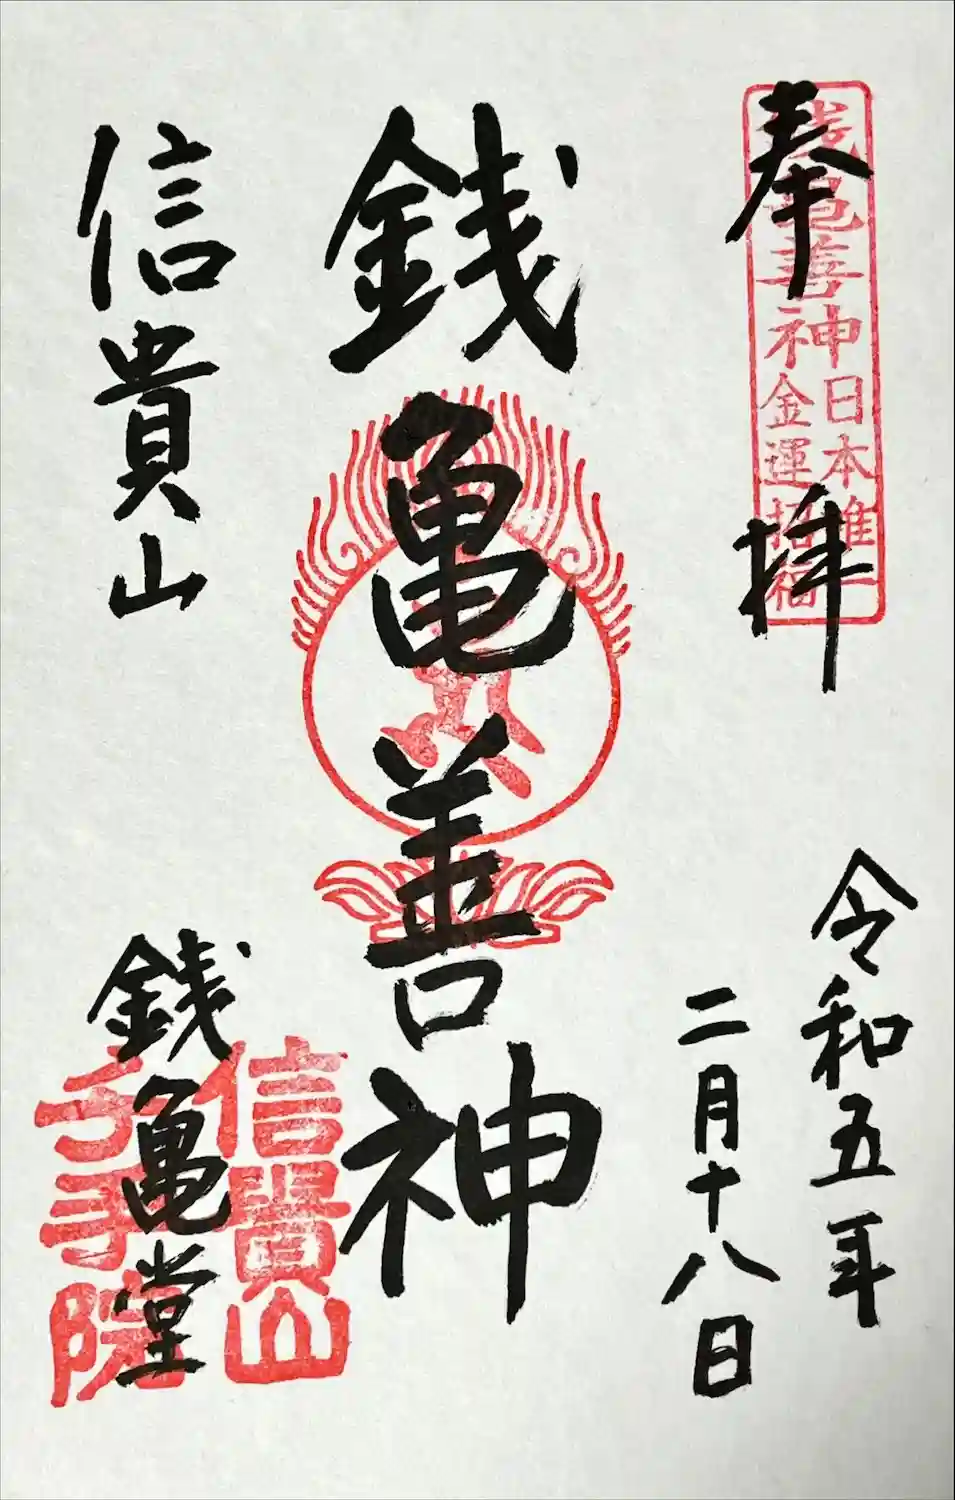 奉拝
銭亀善神
日本唯一
金運招福
令和五年
二月十八日
銭亀善神
信貴山
銭亀堂
信貴山
千手院